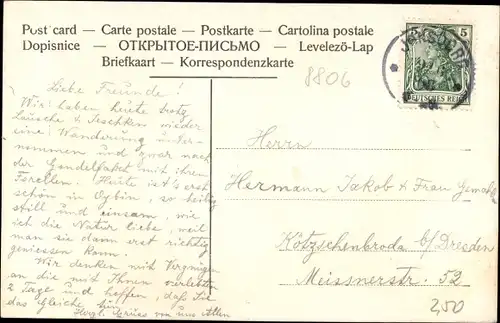 Postcard — Carte postale — Postkarte — Cartolina postale
Dopisnice — ОТКРЫТОЕ-ПИСЬМО — Levelező-Lap
Briefkaart — Korrespondenzkarte
5
DEUTSCHES REICH
8806
Liebe Freunde!
Wir haben heute trotz
Lausche & Jeschken wieder
eine Wanderung unter-
nommen und zwar nach
der Gondelfahrt mit ihren
Forellen. Heute ist's erst
schön in Oybin, so heilig
still und einsam, wie
ich die Natur liebe, weil
man sie dann erst richtig
geniessen kann.
Wir denken mit Vergnügen
an die mit Ihnen verlebten
2 Tage und hoffen, daß Sie
das Gleiche tun
Herzl. Grüss von uns Allen
Herrn
Hermann Jakob & Frau
Kötzschenbroda b/Dresden
Meissnerstr. 52
2,50